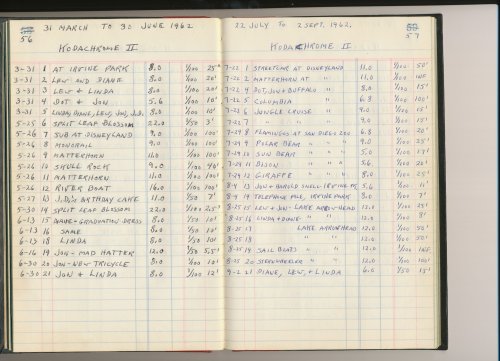 31 MARCH TO 30 JUNE 1962
56
KODACHROME II
3-31 1 AT IRVINE PARK 8.0 1/100 25'
3-31 2 LEW AND DIANE 8.0 1/100 20'
3-31 3 LEW & LINDA 8.0 1/100 20'
3-31 4 DOT & JON 5.6 1/100 10'
3-31 5 LINDA, DIANE, LEW, JON, 8.0 1/100
5-25 6 SPLIT LEAF BLOSSOM 22.0 1/50 3'
5-26 7 SUB AT DISNEYLAND 9.0 1/100 100'
5-26 8 MONORAIL 9.0 1/100 100'
5-26 9 MATTERHORN 11.0 1/100 100'
5-26 10 SKULL ROCK 9.0 1/100 40'
5-26 11 MATTERHORN 11.0 1/100 100'
5-26 12 RIVER BOAT 16.0 1/100 100'
5-27 13 J,D'S BIRTHDAY CAKE 11.0 1/50 7'
5-30 14 SPLIT LEAF BLOSSOM 22.0 1/100 2.5'
6-13 15 GRADUATION DRESS 8.0 1/50 10'
6-13 16 SAME 8.0 1/50 10'
6-13 18 LINDA 8.0 1/50 10'
6-16 19 JON - MAD HATTER 12.0 1/50 5.5'
6-30 20 JON - NEW TRICYCLE 8.0 1/100 10'
6-30 21 JON & LINDA 8.0 1/100 12'
22 JULY TO 2 SEPT. 1962.
57
KODACHROME II
7-22 1 STREETCAR AT DISNEYLAND 11.0 1/100 50'
7-22 2 MATTERHORN AT " 11.0 1/100 INF
7-22 4 DOT, JON & BUFFALO " 8.0 1/100 15'
7-22 5 COLUMBIA " 6.8 1/100 100'
7-22 6 JUNGLE CRUISE " " 9.0 1/100
7-22 7 " " " " 9.0 1/100 15'
7-29 8 FLAMINGOS AT SAN DIEGO ZOO 6.8 1/100 20'
7-29 9 POLAR BEAR " " " 9.0 1/100 25'
7-29 10 SUN BEAR " " " 5.0 1/100 15'
7-29 11 BISON " " " 5.6 1/100 20'
7-29 12 GIRAFFE " " " 8.0 1/100 25'
8-4 13 JON & HAROLD SNELL - IRVINE PK 5.6 1/100 11'
8-4 14 TELEPHONE POLE, IRVINE PARK 8.0 1/100
8-25 15 LEW & JON - LAKE ARROWHEAD 12.0 1/100 25'
8-25 16 LINDA & DIANE - " " 12.0 1/100 8'
8-25 17 LAKE ARROWHEAD 12.0 1/100 50'
8-25 18 " " 12.0 1/100 50'
8-25 19 SAIL BOATS - " " 12.0 1/100 INF
8-25 20 STERNWHEELER " " 12.0 1/100 100'
9-2 21 DIANE, LEW, & LINDA 6.0 1/50 15'